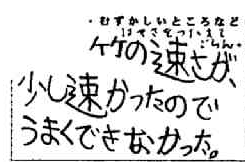 ・むずかしいところなど
はやさをつたえて
ごらん。
竹の速さが、
少し速かったので
うまくできなかった。